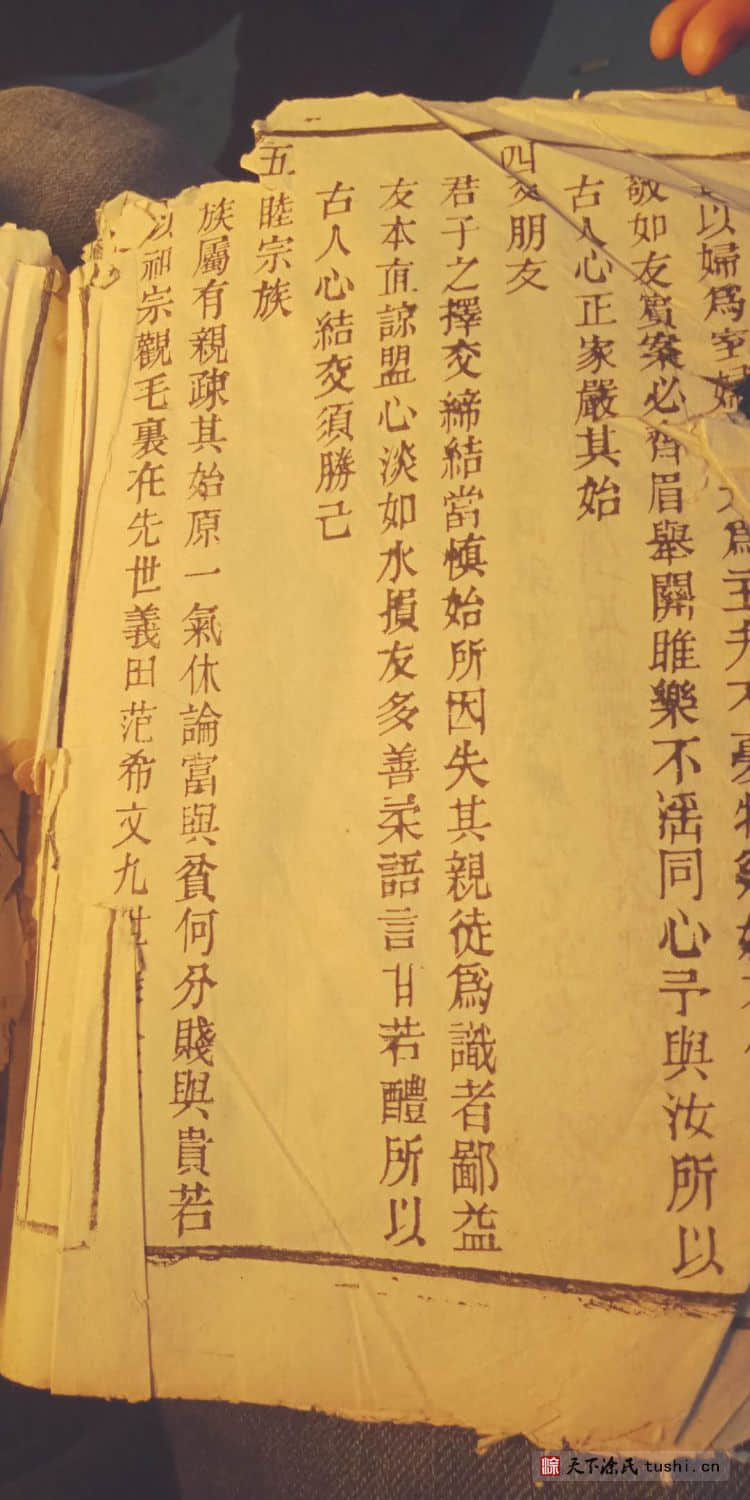 以婦爲室 爲主夫不
敬如友賓案必齊眉舉關雎樂不淫同心予與汝所以
古人心正家嚴其始
四交朋友
君子之擇交締結當慎始所因失其親徒爲識者鄙益
友本直諒盟心淡如水損友多善柔語言甘若醴所以
古人心結交須勝己
五睦宗族
族屬有親疎其始原一氣休論富與貧何分賤與貴若
以祖宗觀毛裏在先世義田范希文九世
天下涂氏 tushi.cn